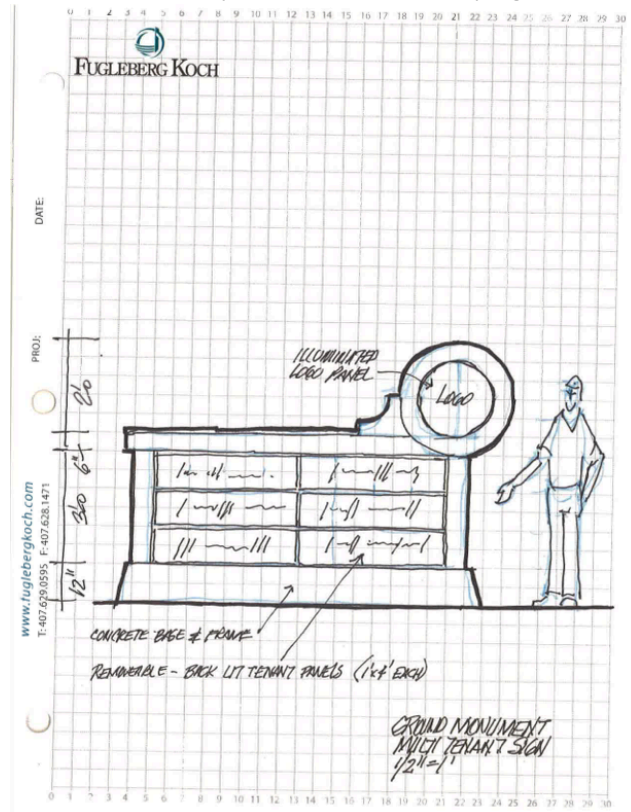 0 1 2 3 4 5 6 7 8 9 10 11 12 13 14 15 16 17 18 19 20 21 22 23 24 25 26 27 28 29 30
FUGLEBERG KOCH
DATE:
PROJ:
www.fuglebergkoch.com
T: 407.629.0595 F: 407.628.1471
ILLUMINATED
LOGO PANEL
LOGO
2'0
6"
3'0
12"
CONCRETE BASE & FRAME
REMOVABLE - BACK LIT TENANT PANELS (1'x4' EACH)
GROUND MONUMENT
MULTI TENANT SIGN
1/2"=1'
0 1 2 3 4 5 6 7 8 9 10 11 12 13 14 15 16 17 18 19 20 21 22 23 24 25 26 27 28 29 30